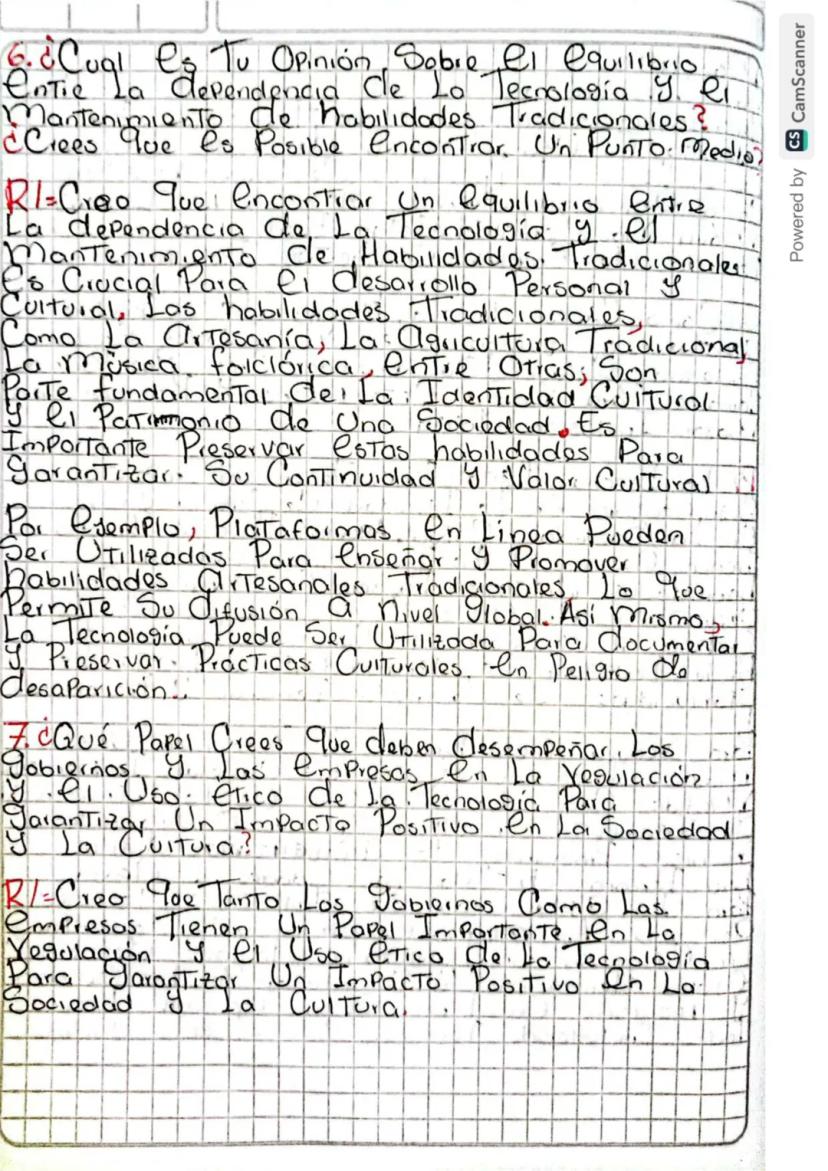 6. ¿Cual es Tu Opinión Sobre el equilibrio
entre La dependencia de La Tecnología y el
Mantenimiento de habilidades Tradicionales?
¿Crees que es Posible encontrar Un Punto Medio?
R/= Creo que encontrar un equilibrio entre
La dependencia de La Tecnología y el
Mantenimiento de Habilidades Tradicionales
es Crucial Para el desarrollo Personal y
Cultural, Las habilidades Tradicionales,
Como La Artesanía, La Agricultura Tradicional
La música folclórica, entre Otras, Son
Parte fundamental de La Identidad Cultural
y el Patrimonio de Una Sociedad. Es
Importante Preservar estas habilidades Para
garantizar Su Continuidad y Valor Cultural
Por ejemplo, Plataformas en Línea Pueden
Ser Utilizadas Para enseñar y Promover
habilidades Artesanales Tradicionales, Lo que
Permite Su difusión a nivel global. Así mismo,
La Tecnología Puede Ser Utilizada Para documentar
y Preservar Prácticas Culturales en Peligro de
desaparición.
7. ¿Qué Papel Crees que deben desempeñar Los
gobiernos y Las empresas en La regulación
y el Uso ético de La Tecnología Para
garantizar Un Impacto Positivo en La Sociedad
y La Cultura?
R/= Creo que Tanto Los gobiernos Como Las
empresas Tienen Un Papel Importante en La
regulación y el Uso ético de La Tecnología
Para garantizar Un Impacto Positivo en La
Sociedad y La Cultura.
Powered by CS CamScanner